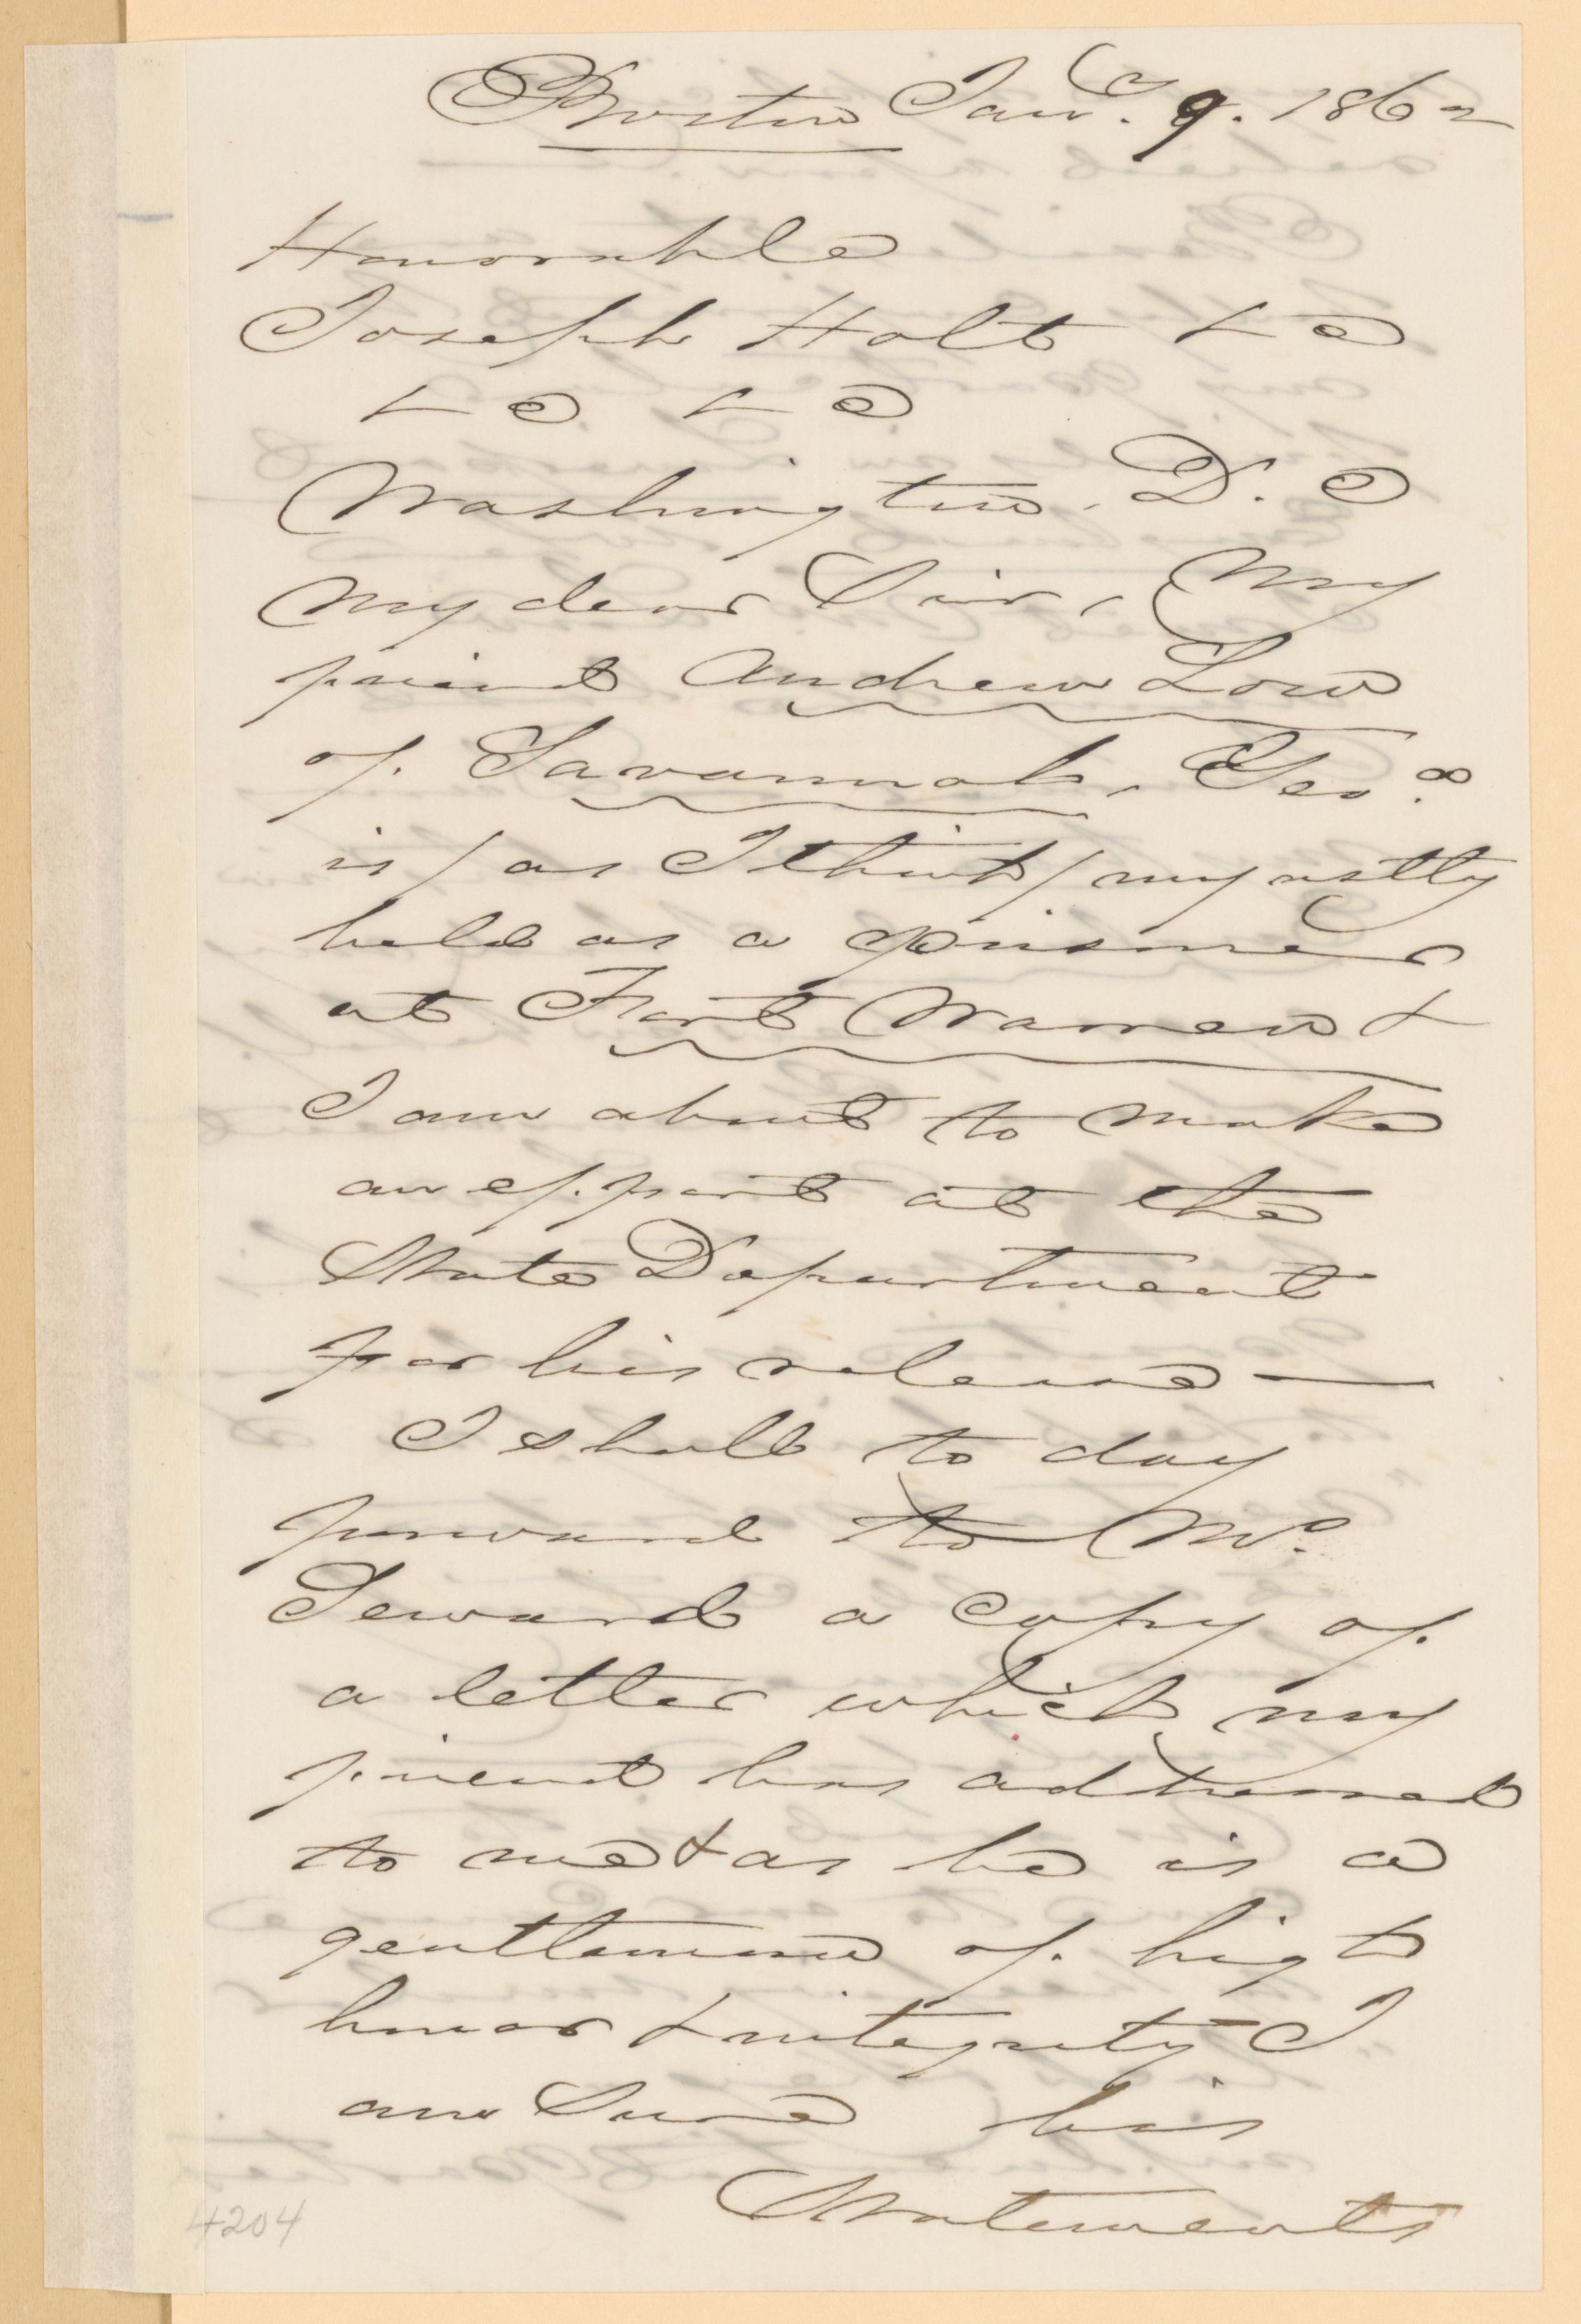 Boston Jany. 9. 1862
Honorable
Joseph Holt &c
&c &c
Washington. D. C
My dear Sir, My
friend Andrew Low
of Savannah, Geo.a
is / as I think / unjustly
held as a prisoner
at Fort Warren &
I am about to make
an effort at the
State Department
for his release —
I shall to day
forward to Mr.
Seward a copy of
a letter which my
friend has addressed
to me & as he is a
gentleman of high
honor & integrity I
am Sure his
Statements
4204